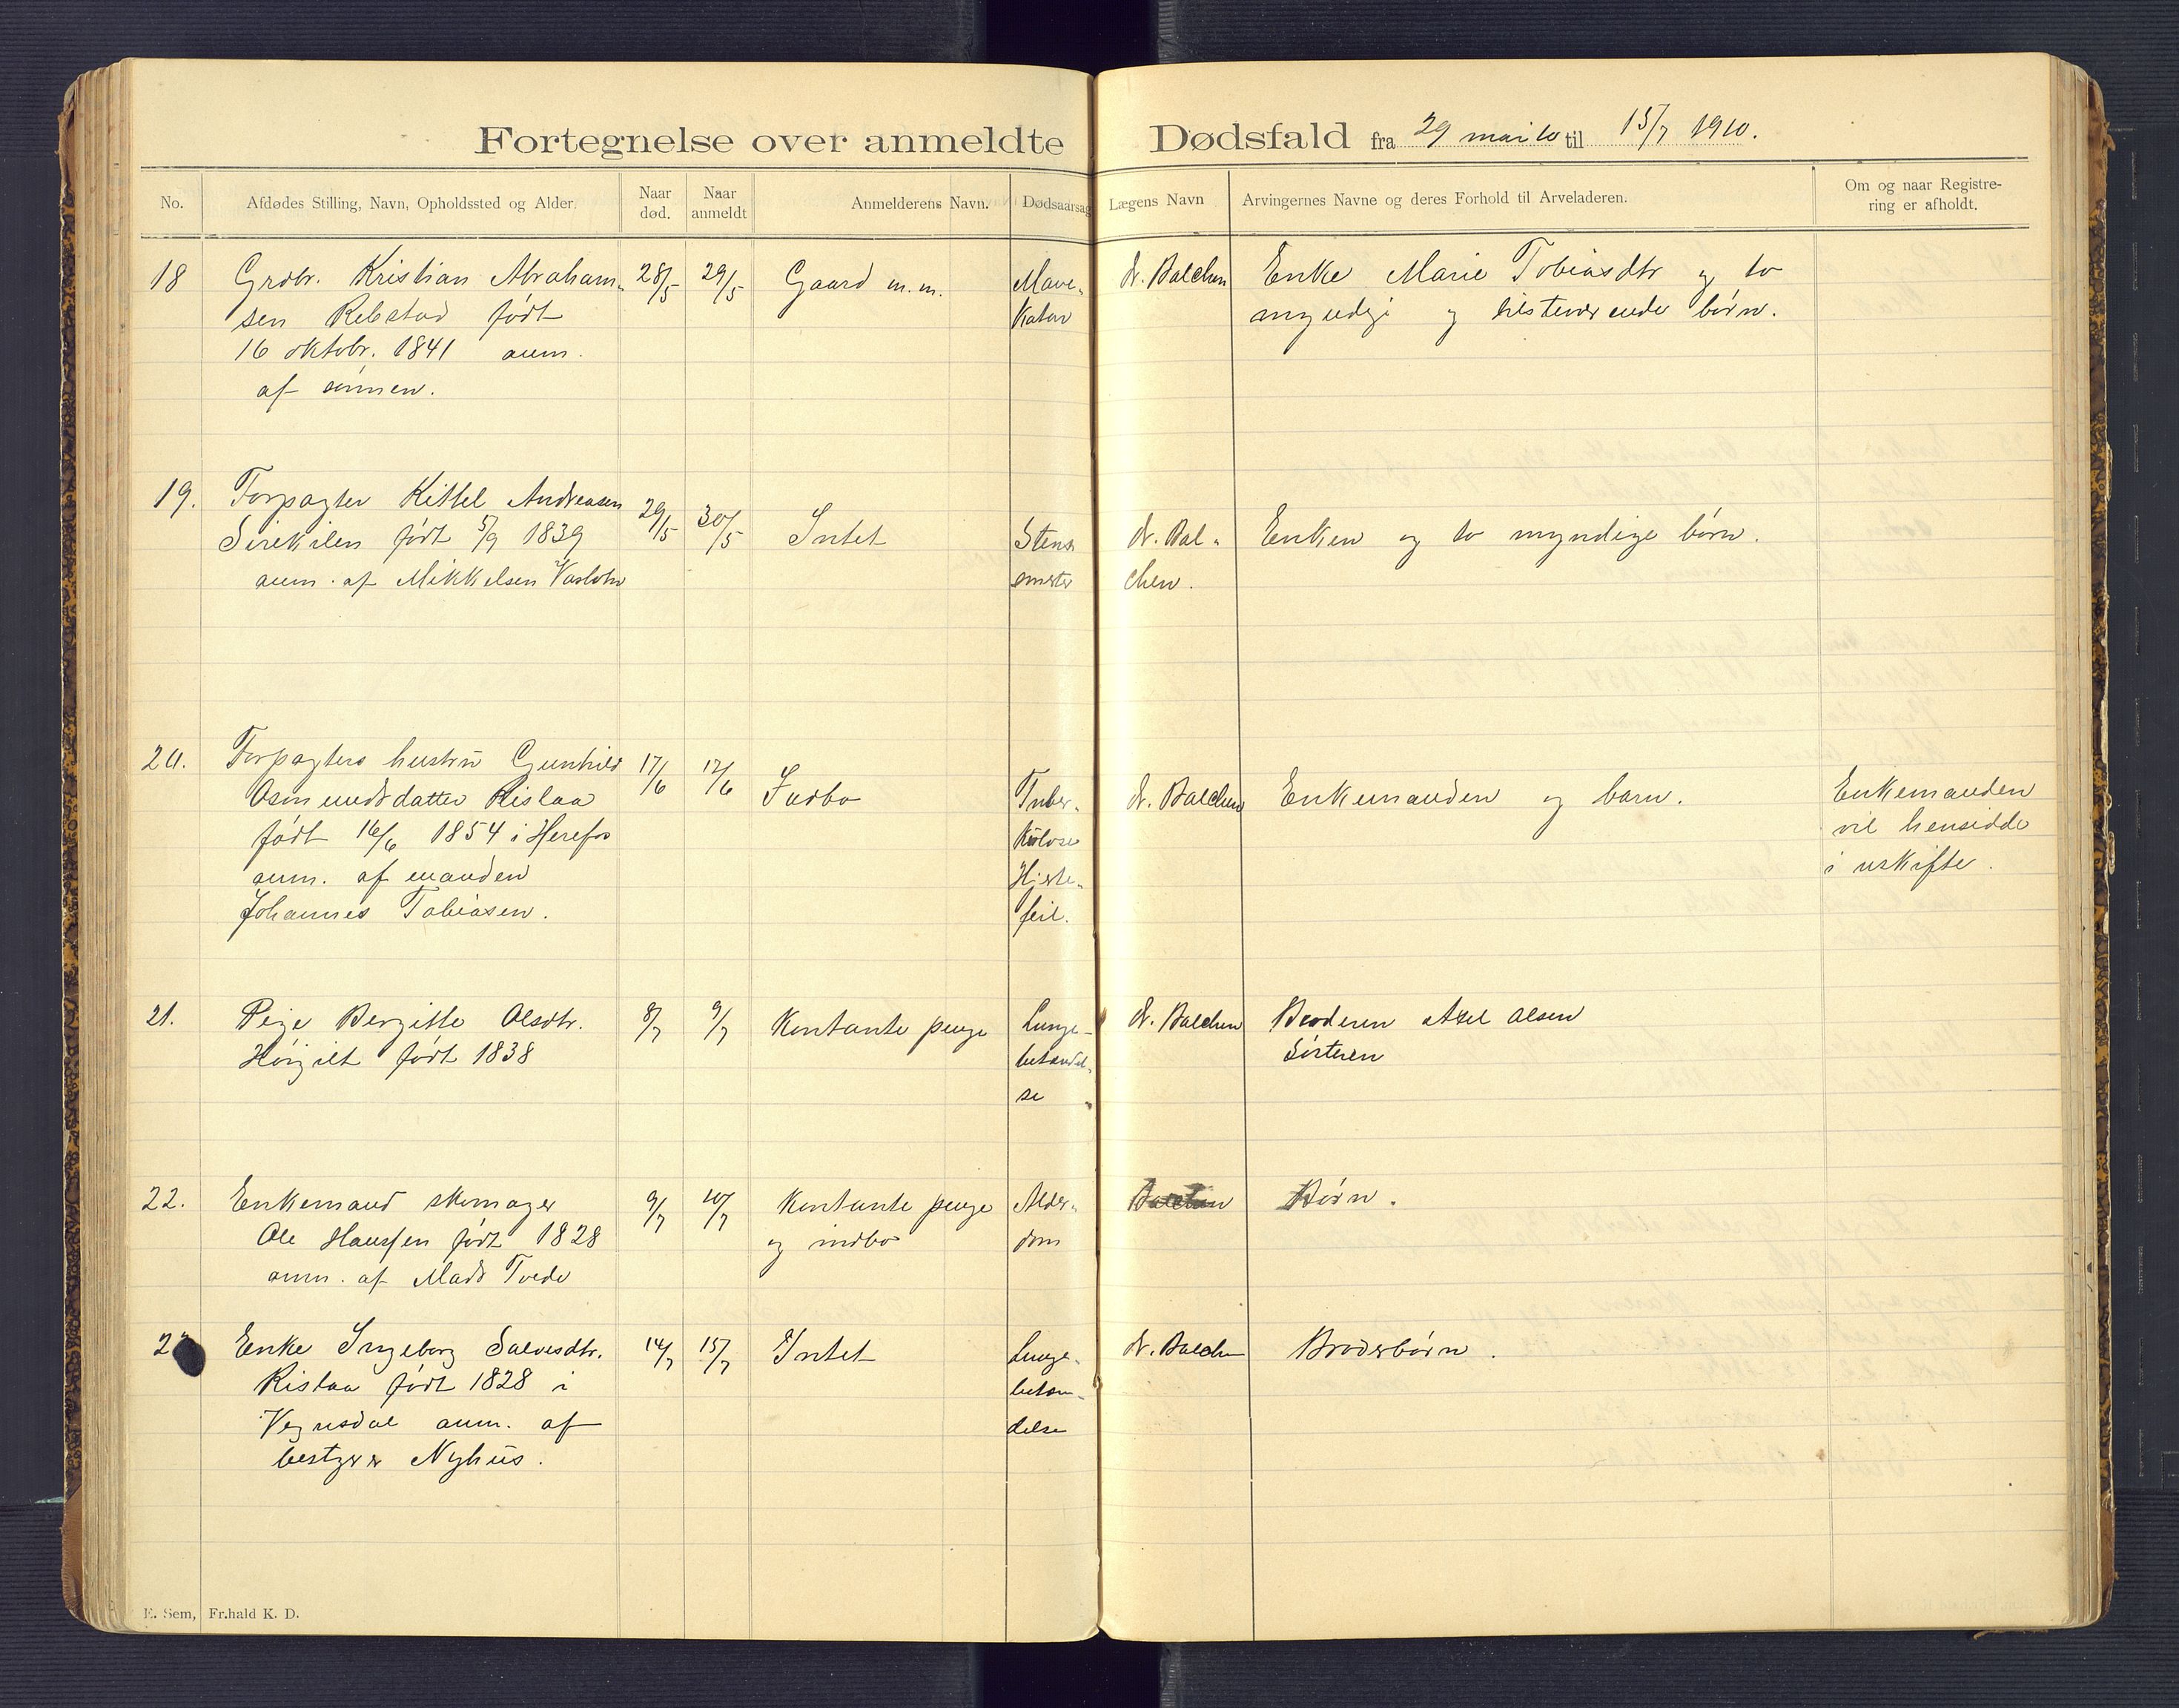 Fortegnelse over anmeldte Dødsfald fra 29 mai 10 til 15/7 1910.
No. Afdødes Stilling, Navn, Opholdssted og Alder. Naar død. Naar anmeldt Anmelderens Navn. Dødsaarsag Lægens Navn Arvingernes Navne og deres Forhold til Arveladeren. Om og naar Registrering er afholdt.
18 Grdbr. Kristian Abraham- 28/5 29/5 Gaard m.m. Mave- dr. Balchen Enke Marie Tobiasdtr og to
sen Rebstad født Katar myndige og tilstedeværende børn.
16 oktobr. 1841 anm.
af sønnen.
19. Forpagter Kittel Andreasen 29/5 30/5 Intet Stens dr. Bal- Enken og to myndige børn.
født 5/9 1839 smerter chen.
anm. af Mikkelsen
20. Forpagters hustru Gunhild 17/6 17/6 Indbo Tuber- dr. Balchen Enkemanden og barn. Enkemanden
Osmundsdatter Rislaa kulose vil hensidde
født 16/6 1854 i Herefos Hjerte- i uskifte.
anm. af manden feil.
Johannes Tobiasen.
21. Pige Bergitte Olsdtr. 8/7 9/7 Kontante penge Lunge- dr. Balchen Broderen Axel Olsen
født 1838 betændel- Søsteren
se
22. Enkemand skomager 9/7 10/7 Kontante penge Alder- Balchen Børn.
Ole Hanssen født 1828 og indbo dom
anm. af Mads Tvede
Enke Ingeborg Salvesdtr. 14/7 15/7 Intet Lunge- dr. Balchen Broderbørn.
Rislaa født 1828 i betæn-
Vegusdal anm. af delse
bestyrer Nyhus.
E. Sem, Fr.hald K. D.